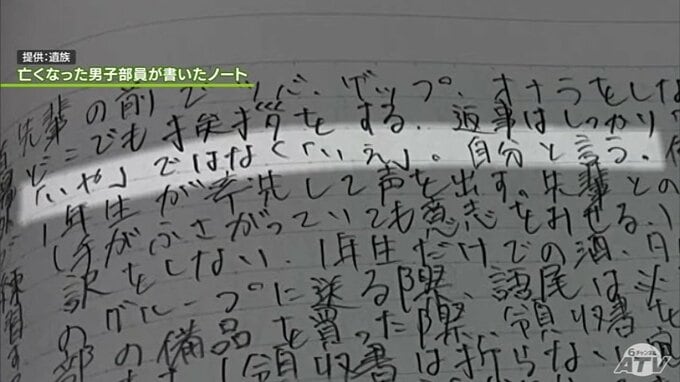 提供：遺族
亡くなった男子部員が書いたノート
先輩の前でツバ、ゲップ、オナラをしな
どこでも挨拶をする。返事はしっかり
「いや」ではなく「いえ」。自分と言う。
1年生が率先して声を出す。先輩との
(手がふさがっていても意志をみせる。)
訳をしない。1年生だけでの酒、
部のグループに送る際、語尾は
の備品を買った際、領収書を
領収書は折らない
練習
6チャンネル
ATV